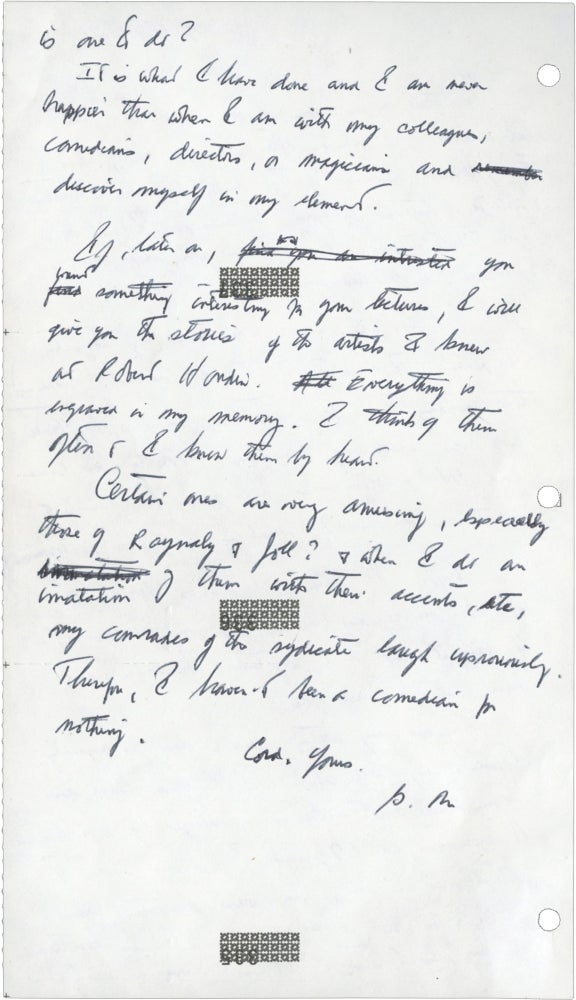 is one to do?
It is what I have done and I am never
happier than when I am with my colleagues,
comedians, directors, or magicians and
discover myself in my element.
If, later on, you
want something interesting in your lectures, I will
give you the stories of the artists I knew
at Robert Houdin. Everything is
engraved in my memory. I think of them
often & I know them by heart.
Certain ones are very amusing, especially
those of Raynaly & Joll? & when I do an
imatation of them with their accents, etc,
my comrades of the sydicate laugh uproriously.
Therefore, I haven't been a comedian for
nothing.
Cord. Yours.